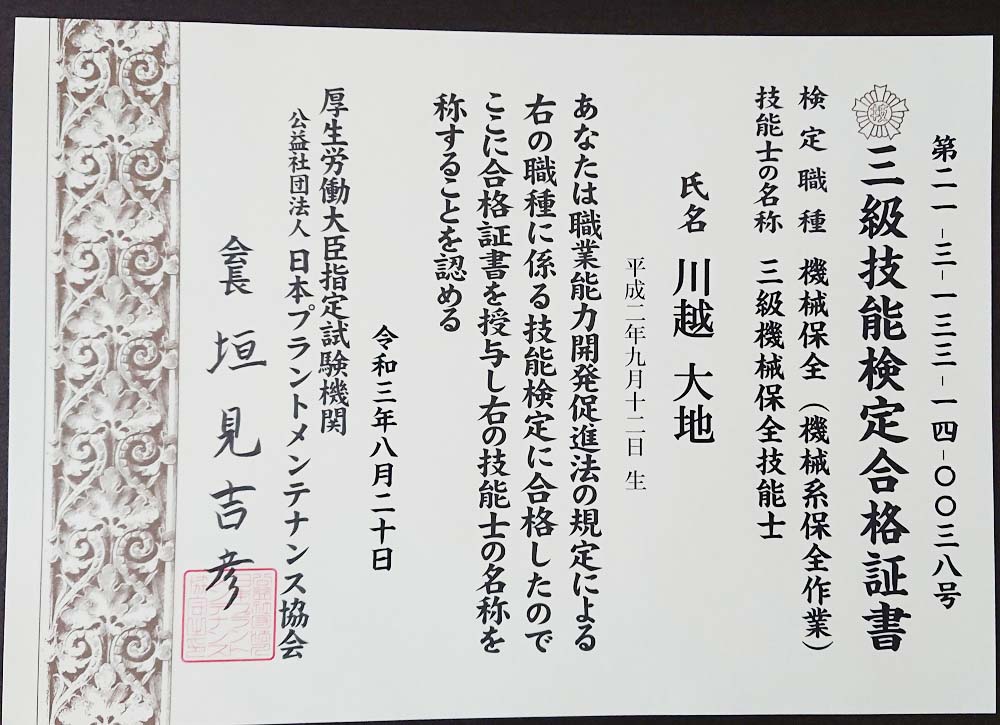 第二一-三-一三三-一四-〇〇三八号
三級技能検定合格証書
検定職種 機械保全（機械系保全作業）
技能士の名称 三級機械保全技能士
氏名 川越 大地
平成二年九月十二日 生
あなたは職業能力開発促進法の規定による
右の職種に係る技能検定に合格したので
ここに合格証書を授与し右の技能士の名称を
称することを認める
令和三年八月二十日
厚生労働大臣指定試験機関
公益社団法人 日本プラントメンテナンス協会
会長 垣見吉彦